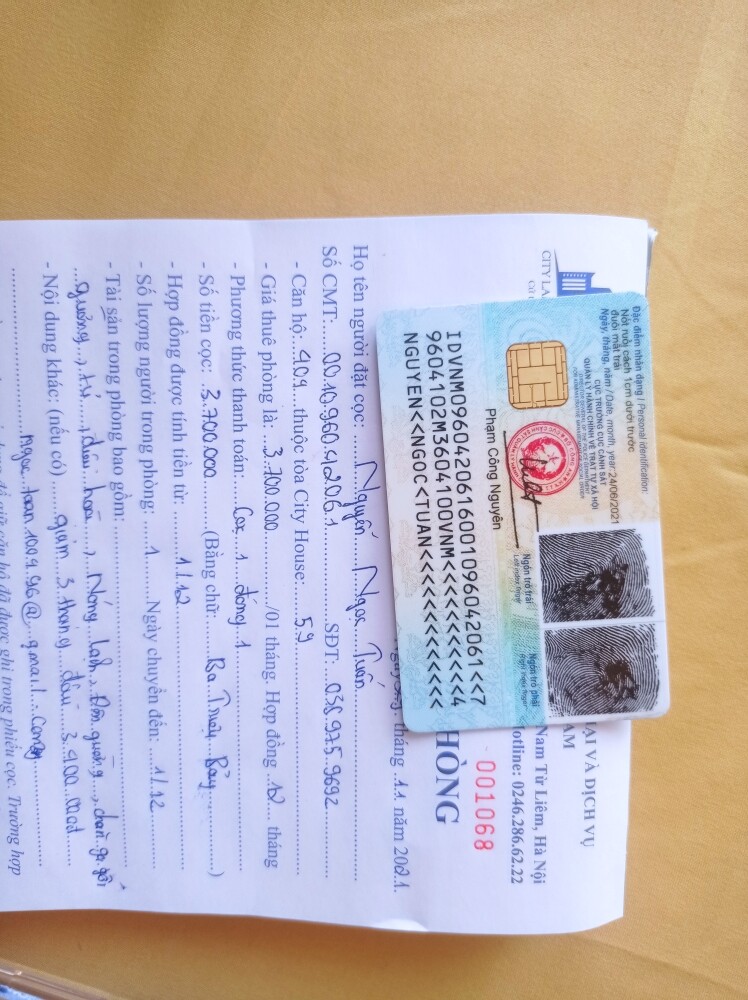 CITY LA
ẠI VÀ DỊCH VỤ
AM
Nam Từ Liêm, Hà Nội
otline: 0246.286.62.22
HÒNG
001068
tháng 11 năm 2021.
Họ tên người đặt cọc: Nguyễn Ngọc Tuấn
Số CMT: 0010960.42061 SĐT: 036975.9692
- Căn hộ: 404 thuộc tòa City House: 59
- Giá thuê phòng là: 3.700.000 /01 tháng. Hợp đồng 12 tháng
- Phương thức thanh toán: Cọc 1 đóng 1
- Số tiền cọc: 3.700.000 (Bằng chữ: Ba Triệu Bảy )
- Hợp đồng được tính tiền từ: 1/12
- Số lượng người trong phòng: 1 Ngày chuyển đến: 1/12
- Tài sản trong phòng bao gồm:
giường, tủ, điều hòa, Nóng Lạnh,
- Nội dung khác: (nếu có) giảm 3 tháng đầu 3.400.000đ
@gmail.com
căn hộ đã được ghi trong phiếu cọc. Trường hợp
Đặc điểm nhân dạng / Personal identification:
Nốt ruồi cách 1cm dưới trước
đuôi mắt trái
Ngày, tháng, năm / Date, month, year: 24/06/2021
CỤC TRƯỞNG CỤC CẢNH SÁT
QUẢN LÝ HÀNH CHÍNH VỀ TRẬT TỰ XÃ HỘI
Phạm Công Nguyên
Ngón trỏ trái
Left index finger
Ngón trỏ phải
Right index finger
IDVNM0960420616001096042061<<7
9604102M3604100VNM<<<<<<<<<<<4
NGUYEN<<NGOC<TUAN<<<<<<<<<<<<<